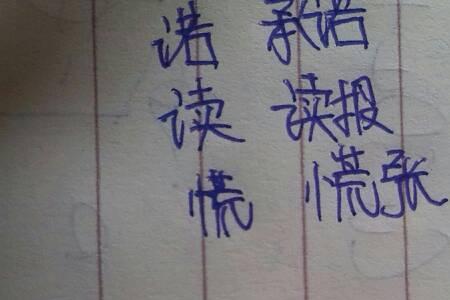 诺 承诺
读 读报
慌 慌张